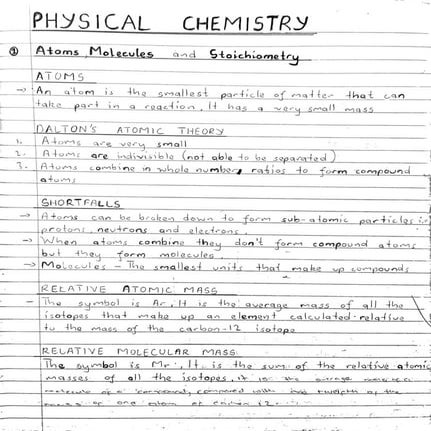 PHYSICAL CHEMISTRY
① Atoms, Molecules and Stoichiometry
ATOMS
→ An atom is the smallest particle of matter that can
take part in a reaction. It has a very small mass
DALTON'S ATOMIC THEORY
1. Atoms are very small
2. Atoms are indivisible (not able to be separated)
3. Atoms combine in whole number, ratios to form compound
atoms
SHORTFALLS
→ Atoms can be broken down to form sub-atomic particles i.e
protons, neutrons and electrons.
→ When atoms combine they don't form compound atoms
but they form molecules.
→ Molecules - The smallest units that make up compounds
RELATIVE ATOMIC MASS
- The symbol is Ar. It is the average mass of all the
isotopes that make up an element calculated relative
to the mass of the carbon-12 isotope
RELATIVE MOLECULAR MASS
The symbol is Mr. It is the sum of the relative atomic
masses of all the isotopes, it is the average mass
molecule of a compound, compared with twelfth of the
mass of one atom of carbon 12.